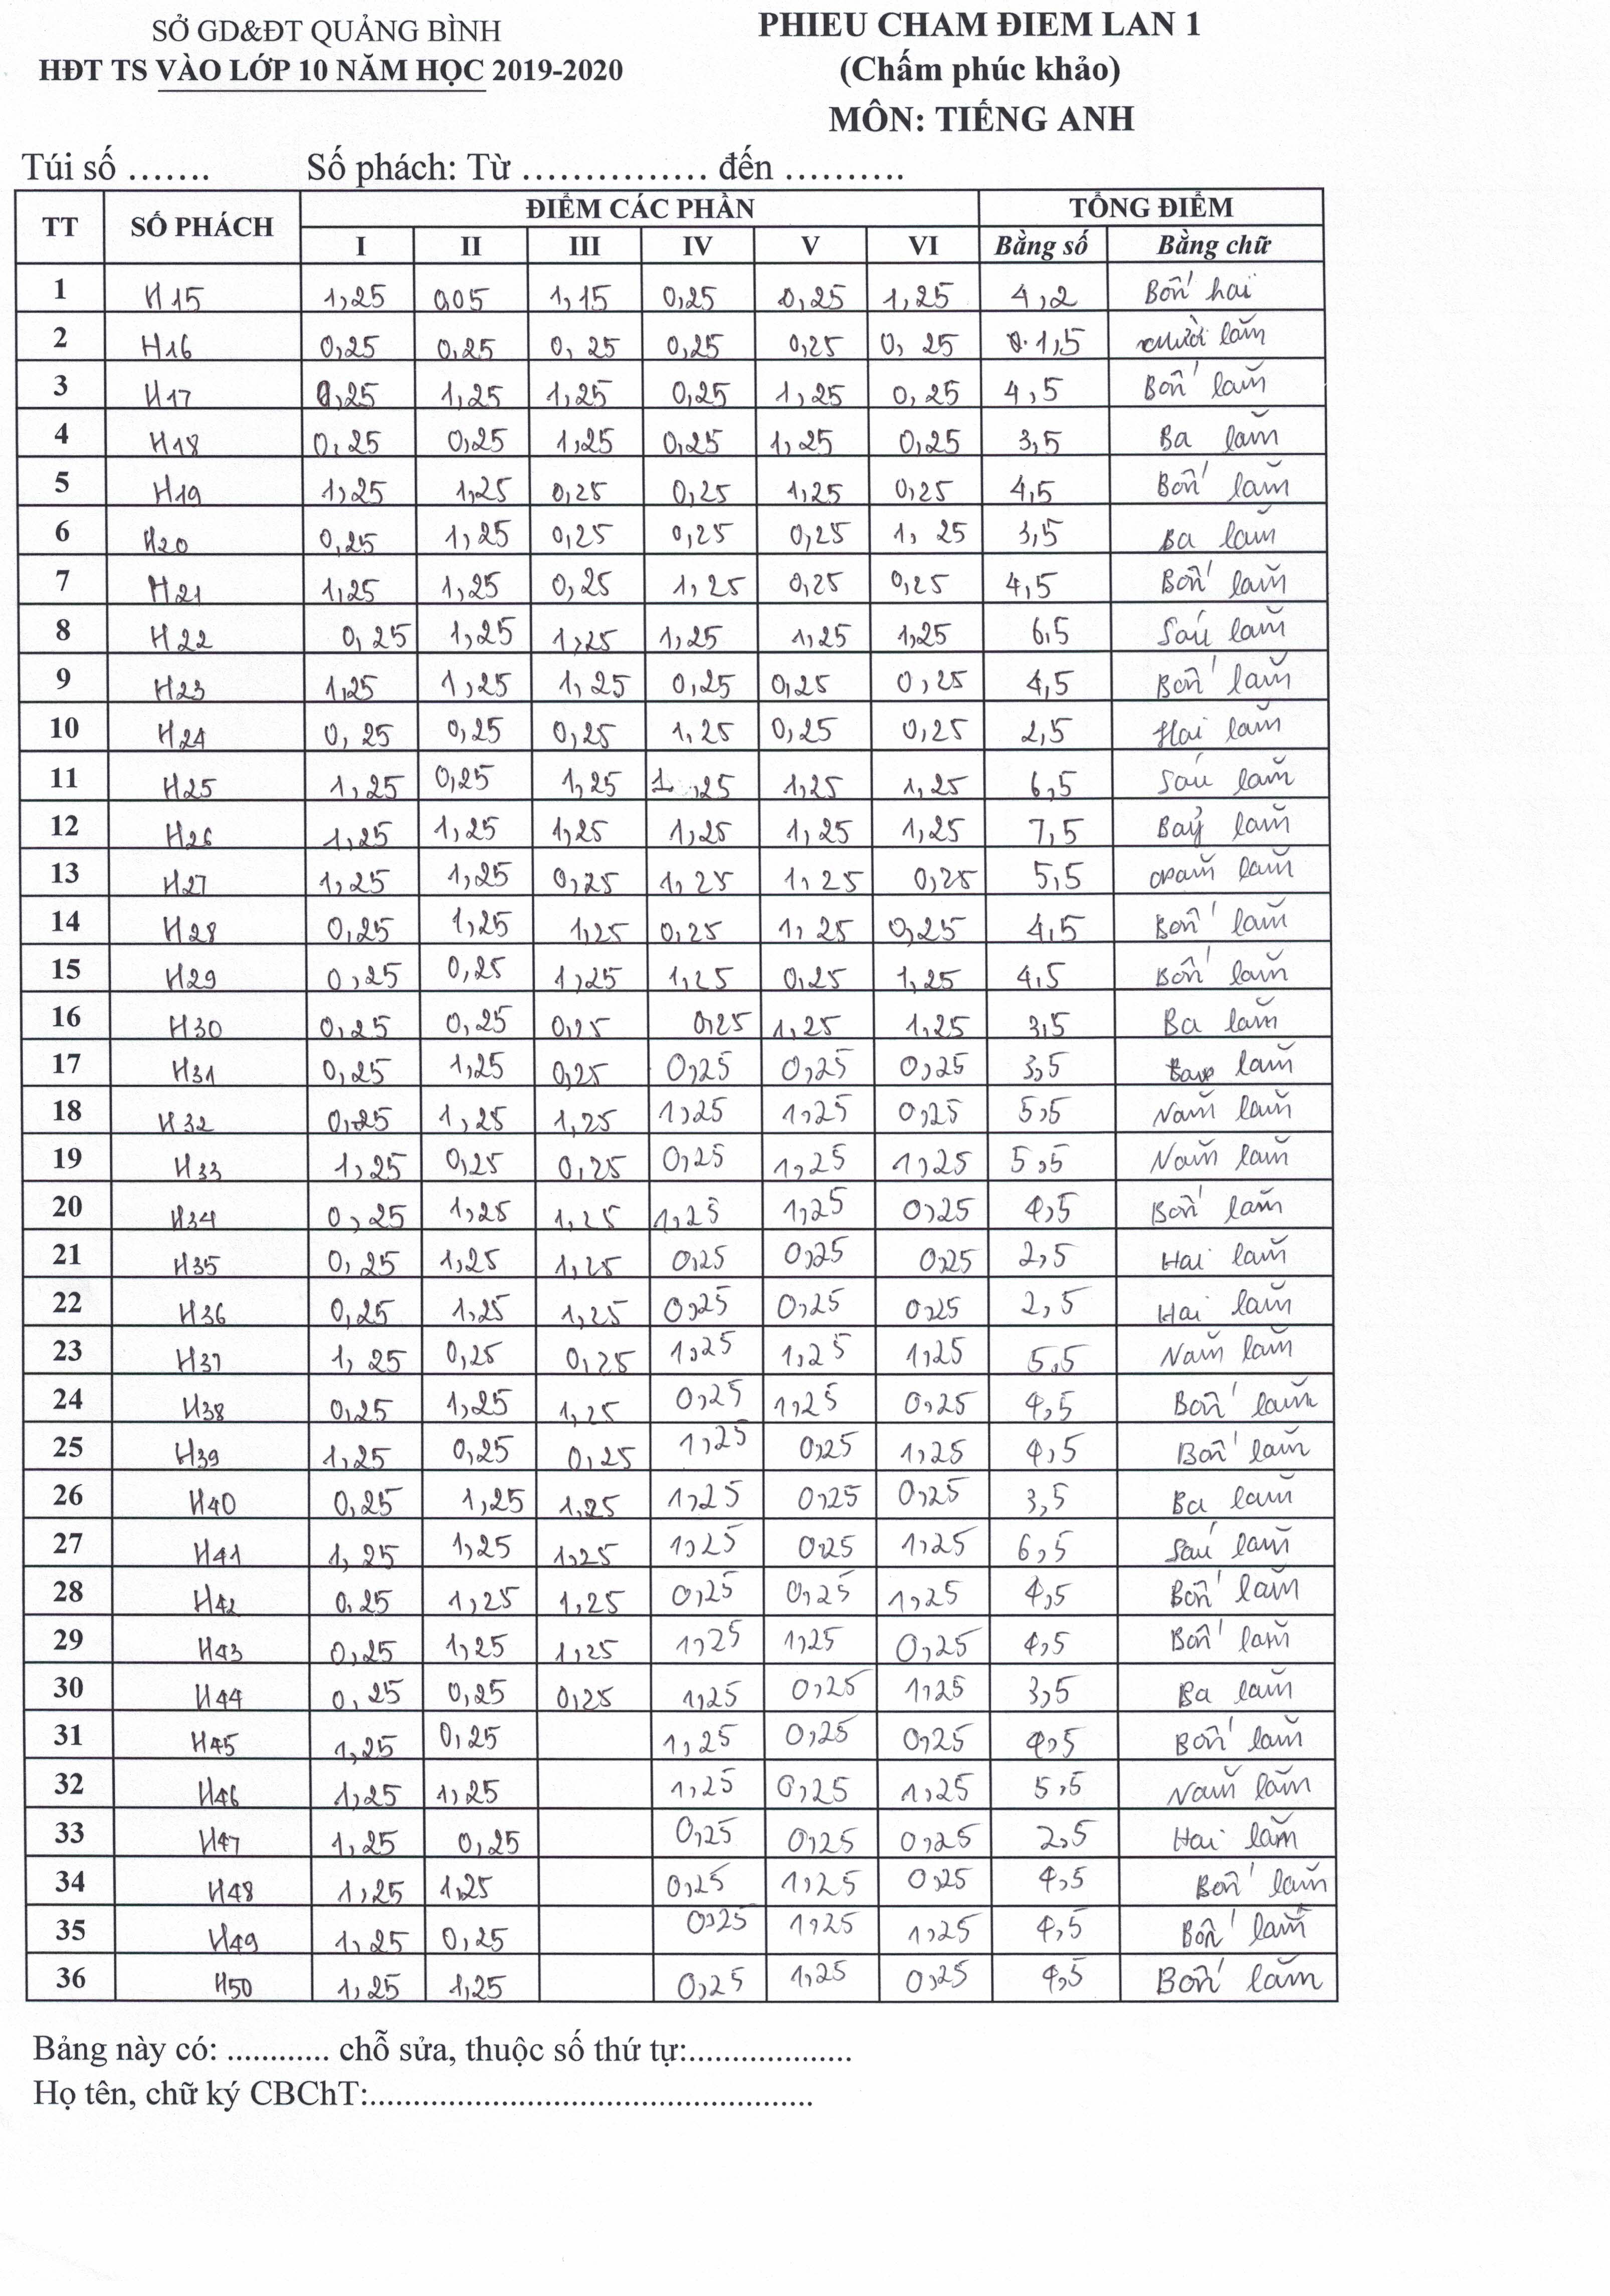 SỞ GD&ĐT QUẢNG BÌNH
HĐT TS VÀO LỚP 10 NĂM HỌC 2019-2020
PHIEU CHAM ĐIEM LAN 1
(Chấm phúc khảo)
MÔN: TIẾNG ANH
Túi số ....... Số phách: Từ ............... đến ..........
TT SỐ PHÁCH ĐIỂM CÁC PHẦN TỔNG ĐIỂM
I II III IV V VI Bằng số Bằng chữ
1 H15 1,25 0,05 1,15 0,25 0,25 1,25 4,2 Bốn hai
2 H16 0,25 0,25 0,25 0,25 0,25 0,25 1,5 Mười lăm
3 H17 0,25 1,25 1,25 0,25 1,25 0,25 4,5 Bốn lăm
4 H18 0,25 0,25 1,25 0,25 1,25 0,25 3,5 Ba lăm
5 H19 1,25 1,25 0,25 0,25 1,25 0,25 4,5 Bốn lăm
6 H20 0,25 1,25 0,25 0,25 0,25 1,25 3,5 Ba lăm
7 H21 1,25 1,25 0,25 1,25 0,25 0,25 4,5 Bốn lăm
8 H22 0,25 1,25 1,25 1,25 1,25 1,25 6,5 Sáu lăm
9 H23 1,25 1,25 1,25 0,25 0,25 0,25 4,5 Bốn lăm
10 H24 0,25 0,25 0,25 1,25 0,25 0,25 2,5 Hai lăm
11 H25 1,25 0,25 1,25 1,25 1,25 1,25 6,5 Sáu lăm
12 H26 1,25 1,25 1,25 1,25 1,25 1,25 7,5 Bảy lăm
13 H27 1,25 1,25 0,25 1,25 1,25 0,25 5,5 năm lăm
14 H28 0,25 1,25 1,25 0,25 1,25 0,25 4,5 Bốn lăm
15 H29 0,25 0,25 1,25 1,25 0,25 1,25 4,5 Bốn lăm
16 H30 0,25 0,25 0,25 0,25 1,25 1,25 3,5 Ba lăm
17 H31 0,25 1,25 0,25 0,25 0,25 0,25 3,5 lăm
18 H32 0,25 1,25 1,25 1,25 1,25 0,25 5,5 Năm lăm
19 H33 1,25 0,25 0,25 0,25 1,25 1,25 5,5 Năm lăm
20 H34 0,25 1,25 1,25 1,25 1,25 0,25 4,5 Bốn lăm
21 H35 0,25 1,25 1,25 0,25 0,25 0,25 2,5 Hai lăm
22 H36 0,25 1,25 1,25 0,25 0,25 0,25 2,5 Hai lăm
23 H37 1,25 0,25 0,25 1,25 1,25 1,25 5,5 Năm lăm
24 H38 0,25 1,25 1,25 0,25 1,25 0,25 4,5 Bốn lăm
25 H39 1,25 0,25 0,25 1,25 0,25 1,25 4,5 Bốn lăm
26 H40 0,25 1,25 1,25 1,25 0,25 0,25 3,5 Ba lăm
27 H41 1,25 1,25 1,25 1,25 0,25 1,25 6,5 Sáu lăm
28 H42 0,25 1,25 1,25 0,25 0,25 1,25 4,5 Bốn lăm
29 H43 0,25 1,25 1,25 1,25 1,25 0,25 4,5 Bốn lăm
30 H44 0,25 0,25 0,25 1,25 0,25 1,25 3,5 Ba lăm
31 H45 1,25 0,25 1,25 0,25 0,25 4,5 Bốn lăm
32 H46 1,25 1,25 1,25 0,25 1,25 5,5 Năm lăm
33 H47 1,25 0,25 0,25 0,25 0,25 2,5 Hai lăm
34 H48 1,25 1,25 0,25 1,25 0,25 4,5 Bốn lăm
35 H49 1,25 0,25 0,25 1,25 1,25 4,5 Bốn lăm
36 H50 1,25 1,25 0,25 1,25 0,25 4,5 Bốn lăm
Bảng này có: ............ chỗ sửa, thuộc số thứ tự:...................
Họ tên, chữ ký CBChT:....................................................